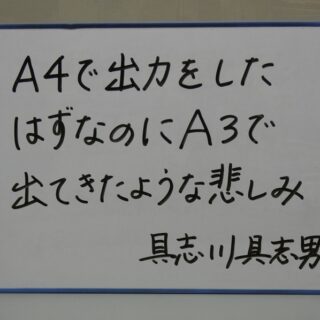 A4で出力をした
はずなのにA3で
出てきたような悲しみ
具志川具志男